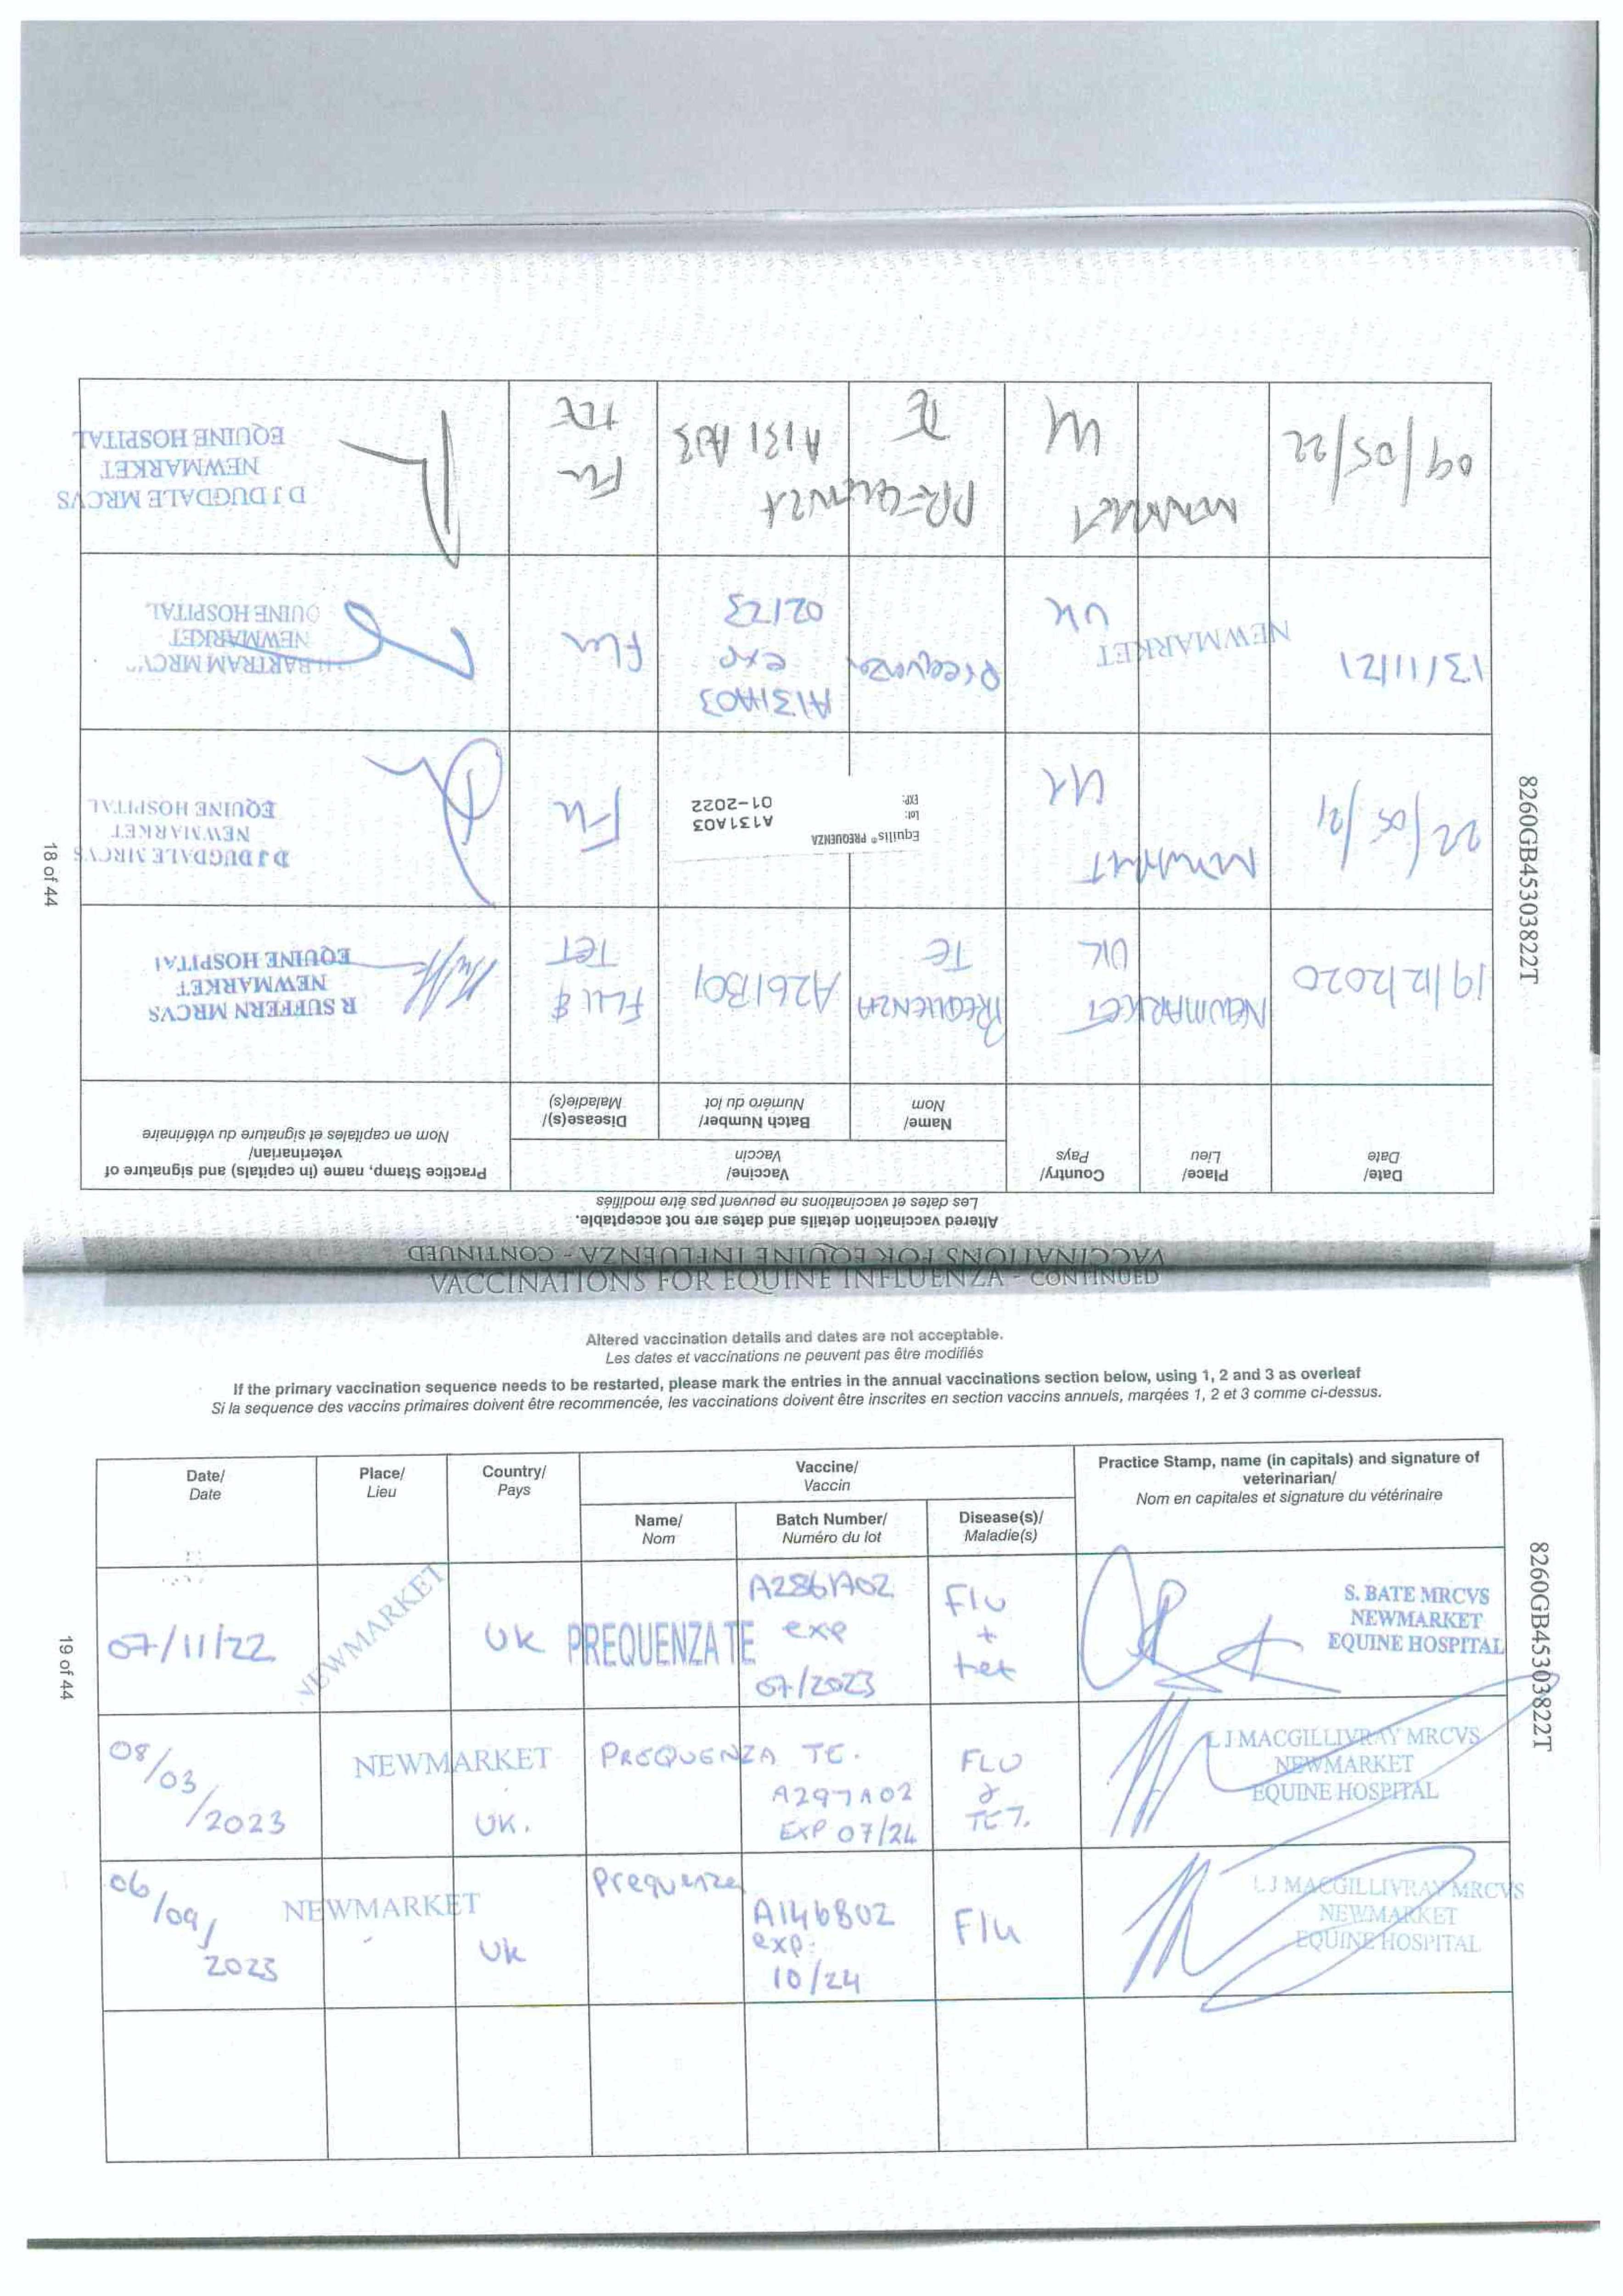 VACCINATIONS FOR EQUINE INFLUENZA - CONTINUED
Altered vaccination details and dates are not acceptable.
Les dates et vaccinations ne peuvent pas être modifiés
Date/
Date
Place/
Lieu
Country/
Pays
Vaccine/
Vaccin
Name/
Nom
Batch Number/
Numéro du lot
Disease(s)/
Maladie(s)
Practice Stamp, name (in capitals) and signature of
veterinarian/
Nom en capitales et signature du vétérinaire
19/12/2020
NEWMARKET
UK
PREQUENZA
TE
A261B01
FLU &
TET
R SUFFERN MRCVS
NEWMARKET
EQUINE HOSPITAL
22/05/21
NEWMARKET
UK
Equilis® PREQUENZA
Lot:
A131A03
EXP:
01-2022
Flu
D J DUGDALE MRCVS
NEWMARKET
EQUINE HOSPITAL
13/11/21
NEWMARKET
UK
Prequenza
A131A03
exp
02/23
Flu
BARTRAM MRCV
NEWMARKET
QUINE HOSPITAL
09/05/22
NEWMARKET
UK
PREQUENZA
TE
A131 A03
Flu
TET
D J DUGDALE MRCVS
NEWMARKET
EQUINE HOSPITAL
8260GB45303822T
18 of 44
VACCINATIONS FOR EQUINE INFLUENZA - CONTINUED
Altered vaccination details and dates are not acceptable.
Les dates et vaccinations ne peuvent pas être modifiés
If the primary vaccination sequence needs to be restarted, please mark the entries in the annual vaccinations section below, using 1, 2 and 3 as overleaf
Si la sequence des vaccins primaires doivent être recommencée, les vaccinations doivent être inscrites en section vaccins annuels, marqées 1, 2 et 3 comme ci-dessus.
Date/
Date
Place/
Lieu
Country/
Pays
Vaccine/
Vaccin
Name/
Nom
Batch Number/
Numéro du lot
Disease(s)/
Maladie(s)
Practice Stamp, name (in capitals) and signature of
veterinarian/
Nom en capitales et signature du vétérinaire
07/11/22
NEWMARKET
UK
PREQUENZA TE
A286A02
exp
07/2023
Flu
+
tet
S. BATE MRCVS
NEWMARKET
EQUINE HOSPITAL
08/03/2023
NEWMARKET
UK.
PREQUENZA TE.
A297A02
EXP 07/24
FLU
&
TET.
L J MACGILLIVRAY MRCVS
NEWMARKET
EQUINE HOSPITAL
06/09/2023
NEWMARKET
UK
Prequenza
A146B02
exp:
10/24
Flu
L J MACGILLIVRAY MRCVS
NEWMARKET
EQUINE HOSPITAL
8260GB45303822T
19 of 44